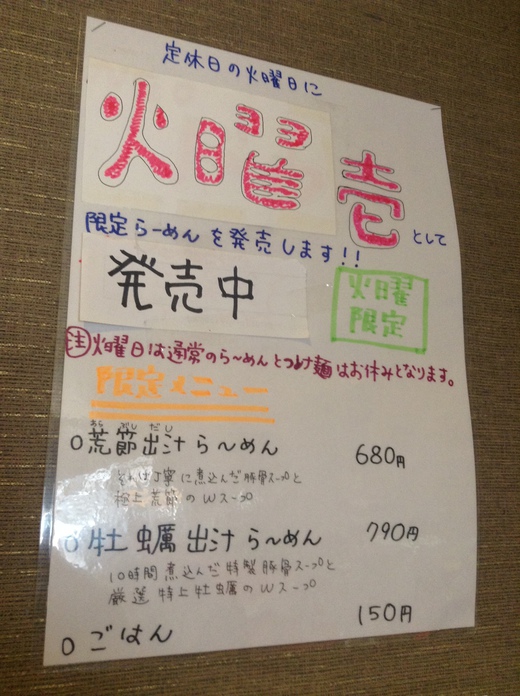 定休日の火曜日に
火曜壱として
限定らーめんを発売します!!
発売中
火曜
限定
注火曜日は通常のら〜めんとつけ麺はお休みとなります。
限定メニュー
あら ぶし だし
○荒節出汁ら〜めん 680円
丁寧に煮込んだ豚骨スープと
極上荒節のWスープ
○牡蠣出汁ら〜めん 790円
10時間煮込んだ特製豚骨スープと
厳選特上牡蠣のWスープ
○ごはん 150円